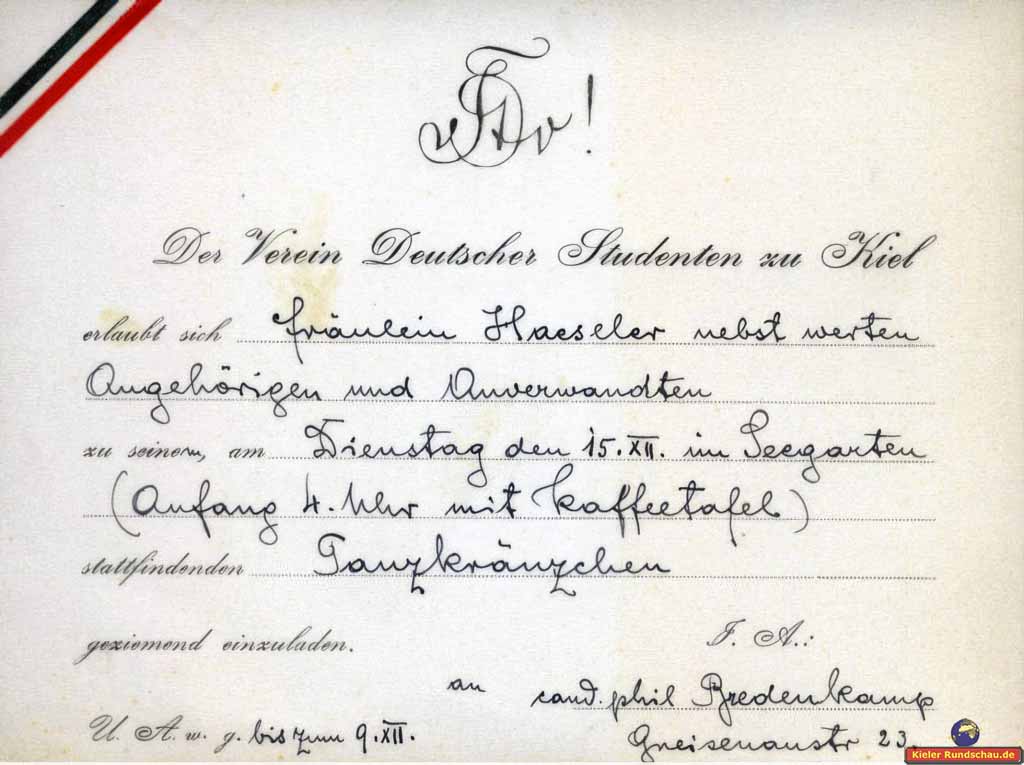 Der Verein Deutscher Studenten zu Kiel
erlaubt sich Fräulein Haeseler nebst werten
Angehörigen und Anverwandten
zu seinem, am Dienstag den 15. XII. im Seegarten
(Anfang 4. Uhr mit Kaffeetafel)
stattfindenden Tanzkränzchen
geziemend einzuladen. I. A.:
an cand. phil Bredenkamp
U. A. w. g. bis zum 9. XII. Gneisenaustr 23.
Kieler Rundschau.de